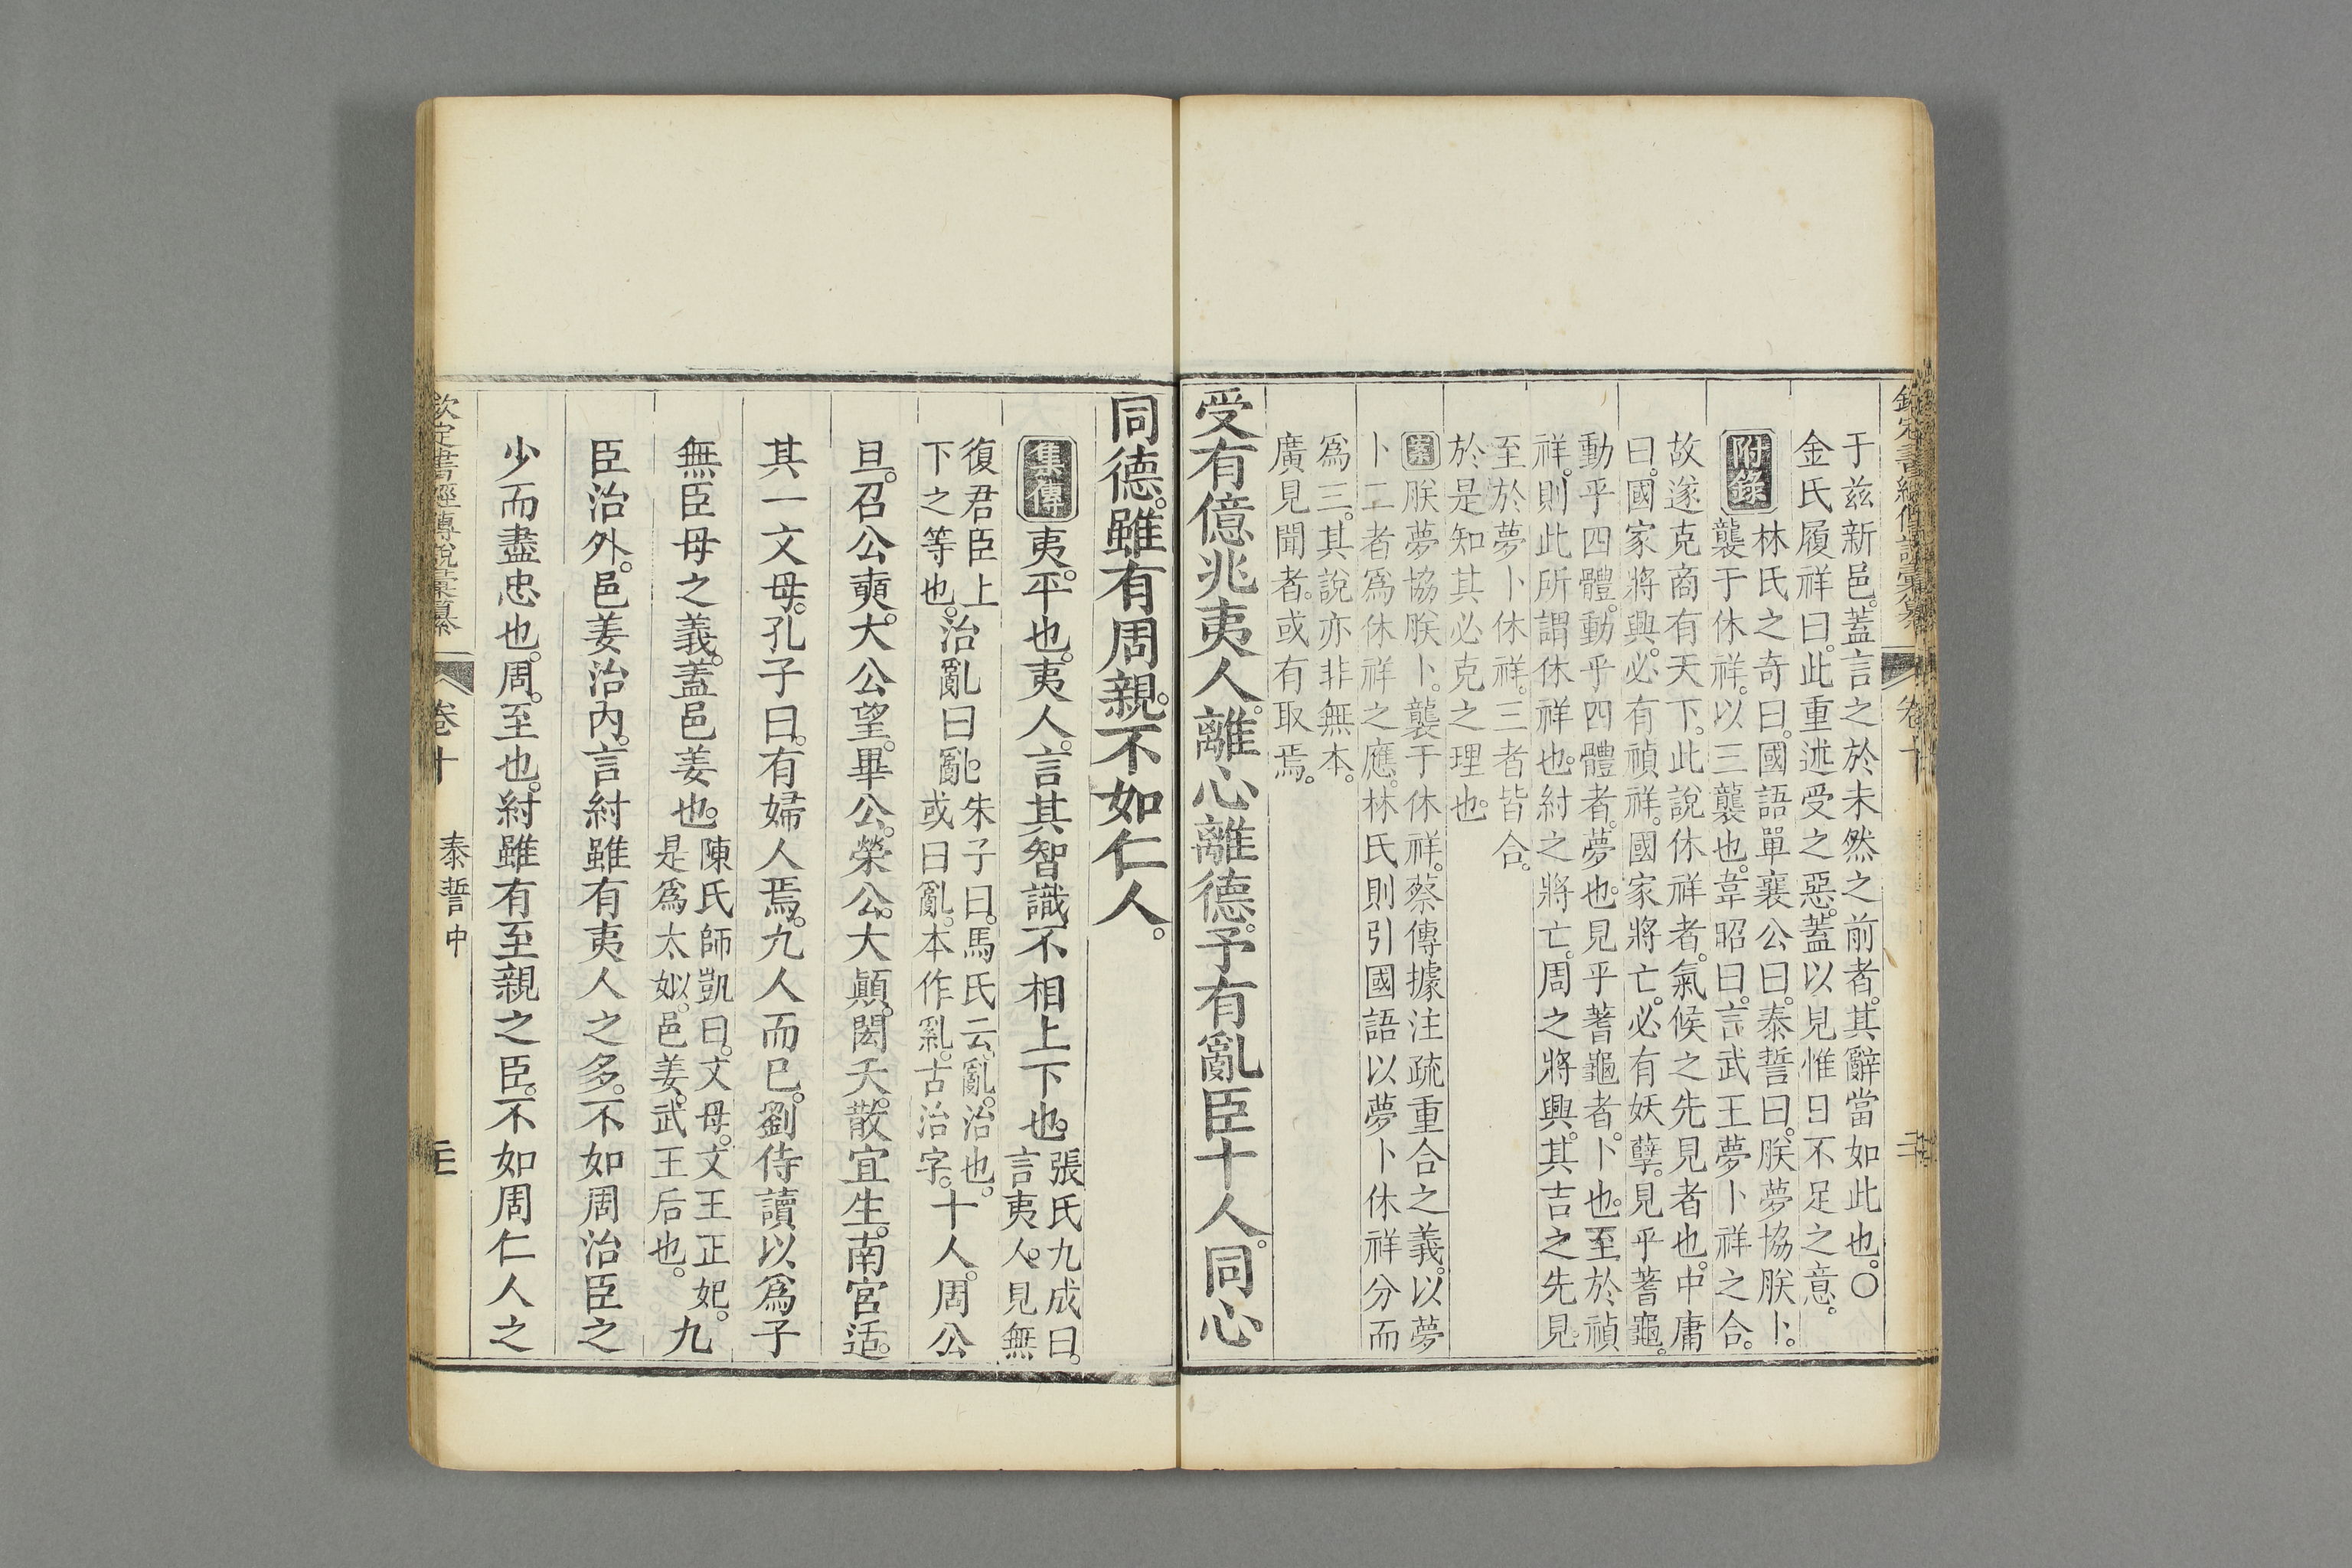 于兹新邑。蓋言之於未然之前者。其辭當如此也。〇
金氏履祥曰。此重述受之惡。蓋以見惟日不足之意。
附錄
林氏之奇曰。國語單襄公曰。泰誓曰。朕夢協朕卜。
襲于休祥。以三襲也。韋昭曰。言武王夢卜祥之合。
故遂克商有天下。此說休祥者。氣候之先見者也。中庸
曰。國家將興。必有禎祥。國家將亡。必有妖孽。見乎蓍龜。
動乎四體。動乎四體者。夢也。見乎蓍龜者。卜也。至於禎
祥。則此所謂休祥也。紂之將亡。周之將興。其吉之先見。
至於夢卜休祥。三者皆合。
於是知其必克之理也。
案朕夢協朕卜。襲于休祥。蔡傳據注疏重合之義。以夢
卜二者爲休祥之應。林氏則引國語以夢卜休祥分而
爲三。其說亦非無本。
廣見聞者。或有取焉。
受有億兆夷人。離心離德。予有亂臣十人。同心
同德。雖有周親。不如仁人。
集傳
夷。平也。夷人。言其智識不相上下也。張氏九成曰。
言夷人。見無
復君臣上
下之等也。治亂曰亂。朱子曰。馬氏云。亂。治也。
或曰亂。本作乿。古治字。十人。周公
旦。召公奭。大公望。畢公。榮公。大顚。閎夭。散宜生。南宮适。
其一文母。孔子曰。有婦人焉。九人而已。劉侍讀以爲子
無臣母之義。蓋邑姜也。陳氏師凱曰。文母。文王正妃。
是爲太姒。邑姜。武王后也。九
臣治外。邑姜治內。言紂雖有夷人之多。不如周治臣之
少而盡忠也。周。至也。紂雖有至親之臣。不如周仁人之
欽定書經傳說彙纂
卷十
泰誓中